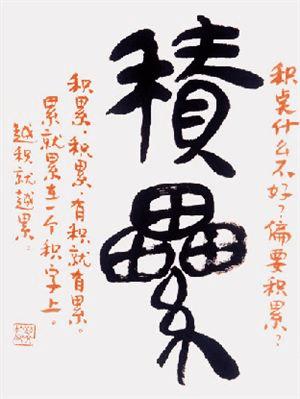 积点什么不好?偏要积累?
積纍
积累,积累,有积就有累。
累就累在一个积字上。
越积就越累。